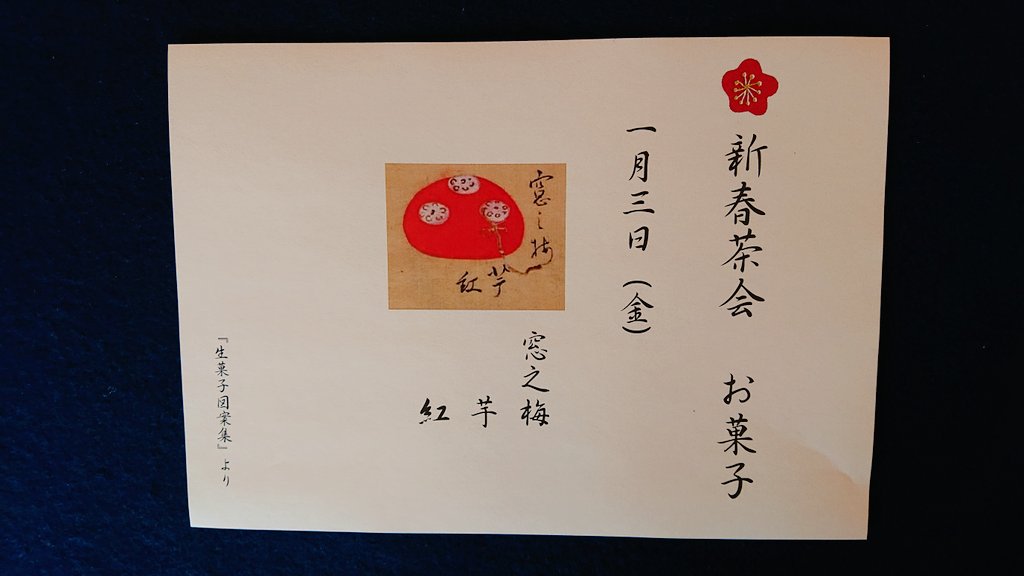 新春茶会　お菓子
一月三日（金）
窓之梅
芋
紅
窓之梅
芋
紅
『生菓子図案集』より